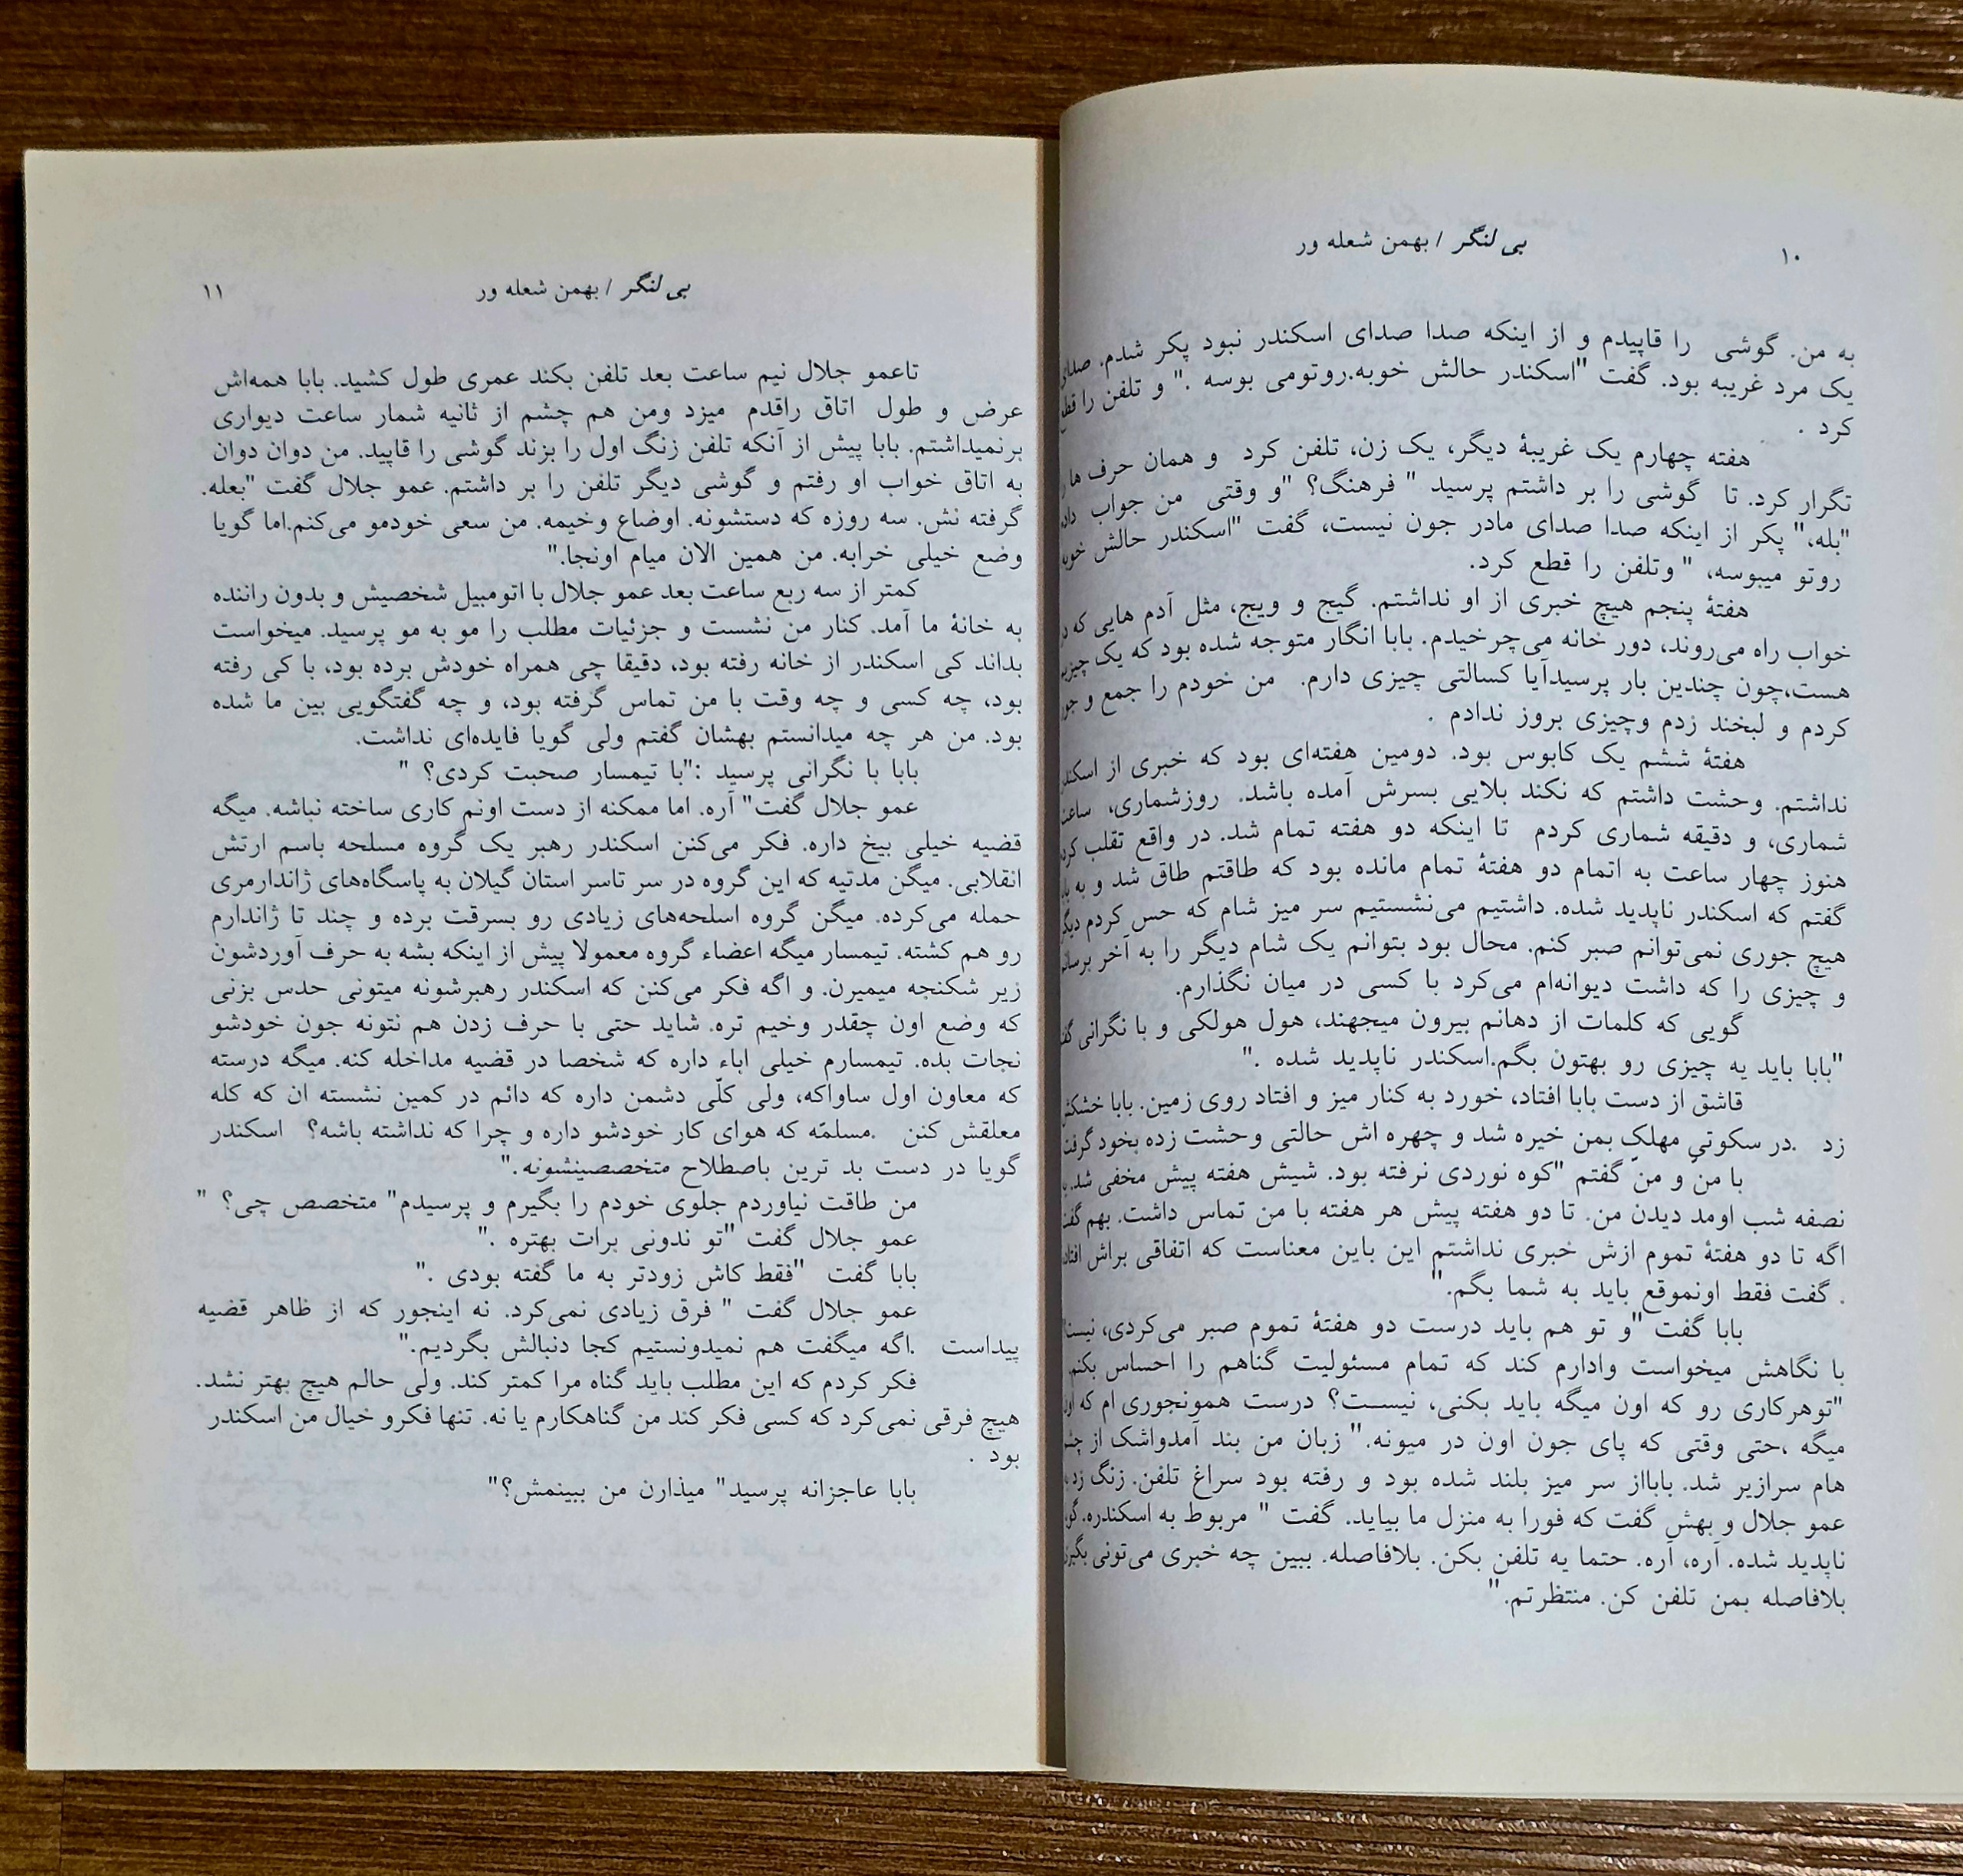 ۱۰
بی لنگر / بهمن شعله ور
به من. گوشی را قاپیدم و از اینکه صدا صدای اسکندر نبود پکر شدم. صدای
یک مرد غریبه بود. گفت "اسکندر حالش خوبه.روتومی بوسه ." و تلفن را قطع
کرد .
هفته چهارم یک غریبهٔ دیگر، یک زن، تلفن کرد و همان حرف ها
تگرار کرد. تا گوشی را بر داشتم پرسید " فرهنگ؟ "و وقتی من جواب
"بله،" پکر از اینکه صدا صدای مادر جون نیست، گفت "اسکندر حالش
روتو میبوسه، " وتلفن را قطع کرد.
هفتهٔ پنجم هیچ خبری از او نداشتم. گیج و ویج، مثل آدم هایی که
خواب راه می‌روند، دور خانه می‌چرخیدم. بابا انگار متوجه شده بود که یک
هست،چون چندین بار پرسیدآیا کسالتی چیزی دارم. من خودم را جمع و
کردم و لبخند زدم وچیزی بروز ندادم .
هفتهٔ ششم یک کابوس بود. دومین هفته‌ای بود که خبری از
نداشتم. وحشت داشتم که نکند بلایی بسرش آمده باشد. روزشماری،
شماری، و دقیقه شماری کردم تا اینکه دو هفته تمام شد. در واقع تقلب
هنوز چهار ساعت به اتمام دو هفتهٔ تمام مانده بود که طاقتم طاق شد و به
گفتم که اسکندر ناپدید شده. داشتیم می‌نشستیم سر میز شام که حس کردم
هیچ جوری نمی‌توانم صبر کنم. محال بود بتوانم یک شام دیگر را به آخر
و چیزی را که داشت دیوانه‌ام می‌کرد با کسی در میان نگذارم.
گویی که کلمات از دهانم بیرون میجهند، هول هولکی و با نگرانی
"بابا باید یه چیزی رو بهتون بگم.اسکندر ناپدید شده ."
قاشق از دست بابا افتاد، خورد به کنار میز و افتاد روی زمین. بابا
زد .در سکوتیِ مهلکِ بمن خیره شد و چهره اش حالتی وحشت زده بخود
با من و منّ گفتم "کوه نوردی نرفته بود. شیش هفته پیش مخفی شد.
نصفه شب اومد دیدن من. تا دو هفته پیش هر هفته با من تماس داشت. بهم
اگه تا دو هفتهٔ تموم ازش خبری نداشتم این باین معناست که اتفاقی براش
. گفت فقط اونموقع باید به شما بگم."
بابا گفت "و تو هم باید درست دو هفتهٔ تموم صبر می‌کردی،
با نگاهش میخواست وادارم کند که تمام مسئولیت گناهم را احساس بکنم.
"توهرکاری رو که اون میگه باید بکنی، نیست؟ درست همونجوری ام که
میگه ،حتی وقتی که پای جون اون در میونه." زبان من بند آمدواشک از
هام سرازیر شد. بابااز سر میز بلند شده بود و رفته بود سراغ تلفن. زنگ زد
عمو جلال و بهش گفت که فورا به منزل ما بیاید. گفت " مربوط به اسکندره.
ناپدید شده. آره، آره. حتما یه تلفن بکن. بلافاصله. ببین چه خبری می‌تونی
بلافاصله بمن تلفن کن. منتظرتم."
بی لنگر / بهمن شعله ور
۱۱
تاعمو جلال نیم ساعت بعد تلفن بکند عمری طول کشید. بابا همه‌اش
عرض و طول اتاق راقدم میزد ومن هم چشم از ثانیه شمار ساعت دیواری
برنمیداشتم. بابا پیش از آنکه تلفن زنگ اول را بزند گوشی را قاپید. من دوان دوان
به اتاق خواب او رفتم و گوشی دیگر تلفن را بر داشتم. عمو جلال گفت "بعله.
گرفته نش. سه روزه که دستشونه. اوضاع وخیمه. من سعی خودمو می‌کنم.اما گویا
وضع خیلی خرابه. من همین الان میام اونجا."
کمتر از سه ربع ساعت بعد عمو جلال با اتومبیل شخصیش و بدون راننده
به خانهٔ ما آمد. کنار من نشست و جزئیات مطلب را مو به مو پرسید. میخواست
بداند کی اسکندر از خانه رفته بود، دقیقا چی همراه خودش برده بود، با کی رفته
بود، چه کسی و چه وقت با من تماس گرفته بود، و چه گفتگویی بین ما شده
بود. من هر چه میدانستم بهشان گفتم ولی گویا فایده‌ای نداشت.
بابا با نگرانی پرسید :"با تیمسار صحبت کردی؟ "
عمو جلال گفت" آره. اما ممکنه از دست اونم کاری ساخته نباشه. میگه
قضیه خیلی بیخ داره. فکر می‌کنن اسکندر رهبر یک گروه مسلحه باسم ارتش
انقلابی. میگن مدتیه که این گروه در سر تاسر استان گیلان به پاسگاه‌های ژاندارمری
حمله می‌کرده. میگن گروه اسلحه‌های زیادی رو بسرقت برده و چند تا ژاندارم
رو هم کشته. تیمسار میگه اعضاء گروه معمولا پیش از اینکه بشه به حرف آوردشون
زیر شکنجه میمیرن. و اگه فکر می‌کنن که اسکندر رهبرشونه میتونی حدس بزنی
که وضع اون چقدر وخیم تره. شاید حتی با حرف زدن هم نتونه جون خودشو
نجات بده. تیمسارم خیلی اباء داره که شخصا در قضیه مداخله کنه. میگه درسته
که معاون اول ساواکه، ولی کلّی دشمن داره که دائم در کمین نشسته ان که کله
معلقش کنن .مسلمّه که هوای کار خودشو داره و چرا که نداشته باشه؟ اسکندر
گویا در دست بد ترین باصطلاح متخصصینشونه."
من طاقت نیاوردم جلوی خودم را بگیرم و پرسیدم" متخصص چی؟ "
عمو جلال گفت "تو ندونی برات بهتره ."
بابا گفت "فقط کاش زودتر به ما گفته بودی ."
عمو جلال گفت " فرق زیادی نمی‌کرد. نه اینجور که از ظاهر قضیه
پیداست .اگه میگفت هم نمیدونستیم کجا دنبالش بگردیم."
فکر کردم که این مطلب باید گناه مرا کمتر کند. ولی حالم هیچ بهتر نشد.
هیچ فرقی نمی‌کرد که کسی فکر کند من گناهکارم یا نه. تنها فکرو خیال من اسکندر
بود .
بابا عاجزانه پرسید" میذارن من ببینمش؟"